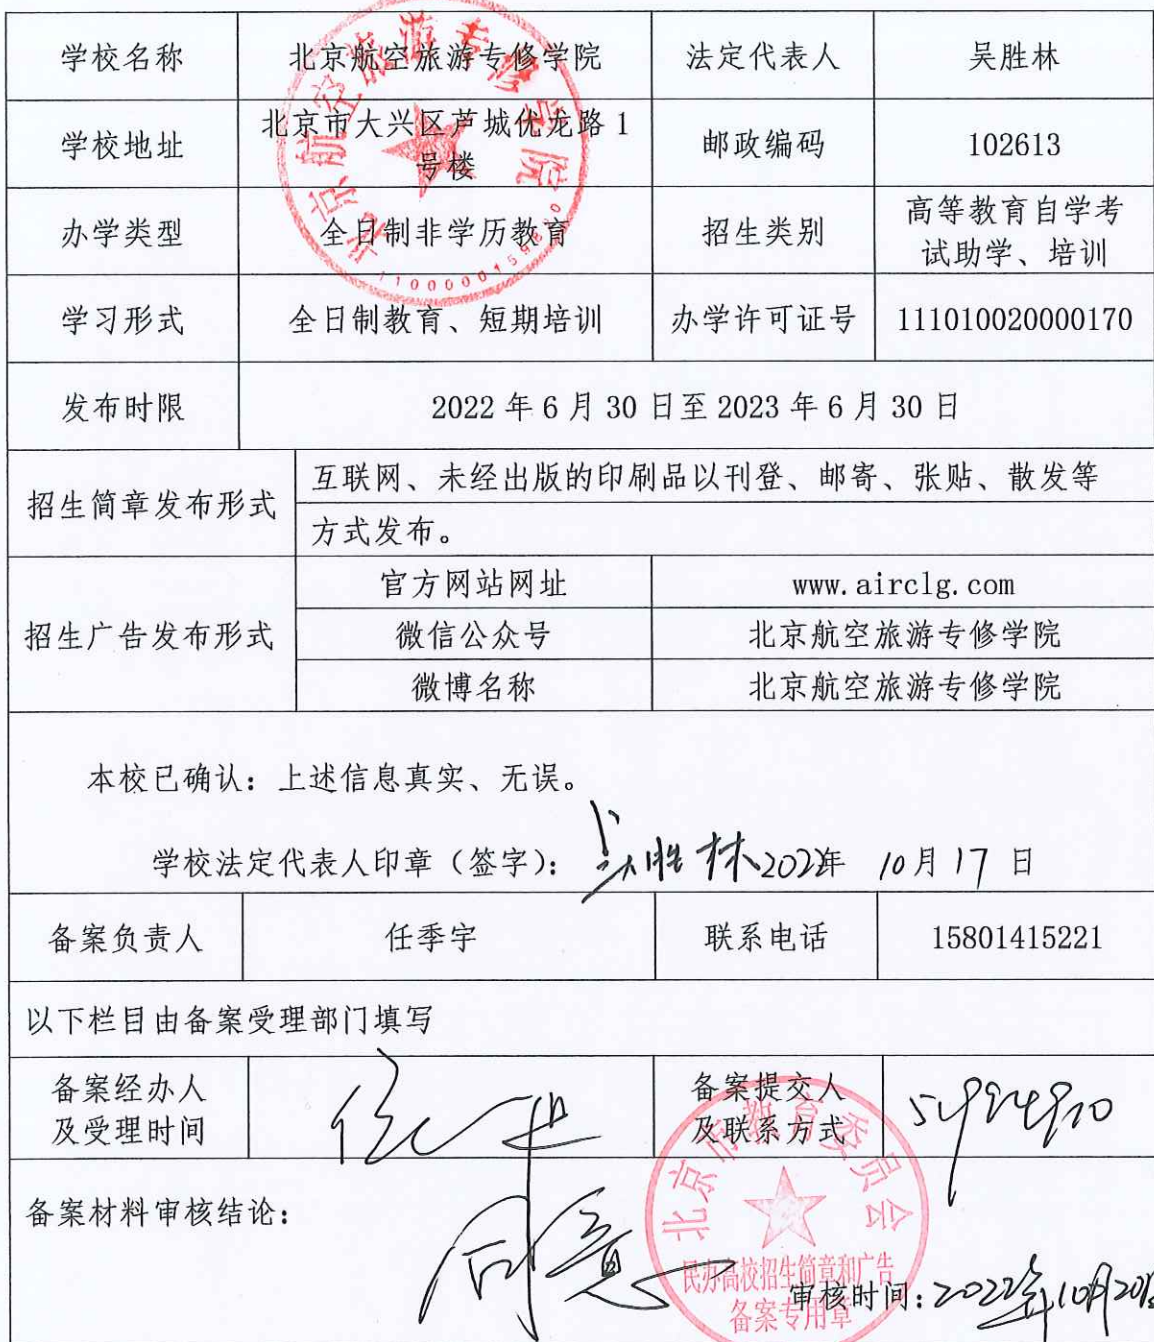 学校名称 北京航空旅游专修学院 法定代表人 吴胜林
学校地址 北京市大兴区芦城优龙路1
号楼 邮政编码 102613
办学类型 全日制非学历教育 招生类别 高等教育自学考
试助学、培训
学习形式 全日制教育、短期培训 办学许可证号 111010020000170
发布时限 2022年6月30日至2023年6月30日
招生简章发布形式 互联网、未经出版的印刷品以刊登、邮寄、张贴、散发等
方式发布。
招生广告发布形式 官方网站网址 www.airclg.com
微信公众号 北京航空旅游专修学院
微博名称 北京航空旅游专修学院
本校已确认：上述信息真实、无误。
学校法定代表人印章（签字）：吴胜林 2022年 10月17日
备案负责人 任季宇 联系电话 15801415221
以下栏目由备案受理部门填写
备案经办人
及受理时间
备案提交人
及联系方式
备案材料审核结论：
同意
审核时间：2022年10月20日
北京航空旅游专修学院
北京市教育委员会
民办高校招生简章和广告
备案专用章